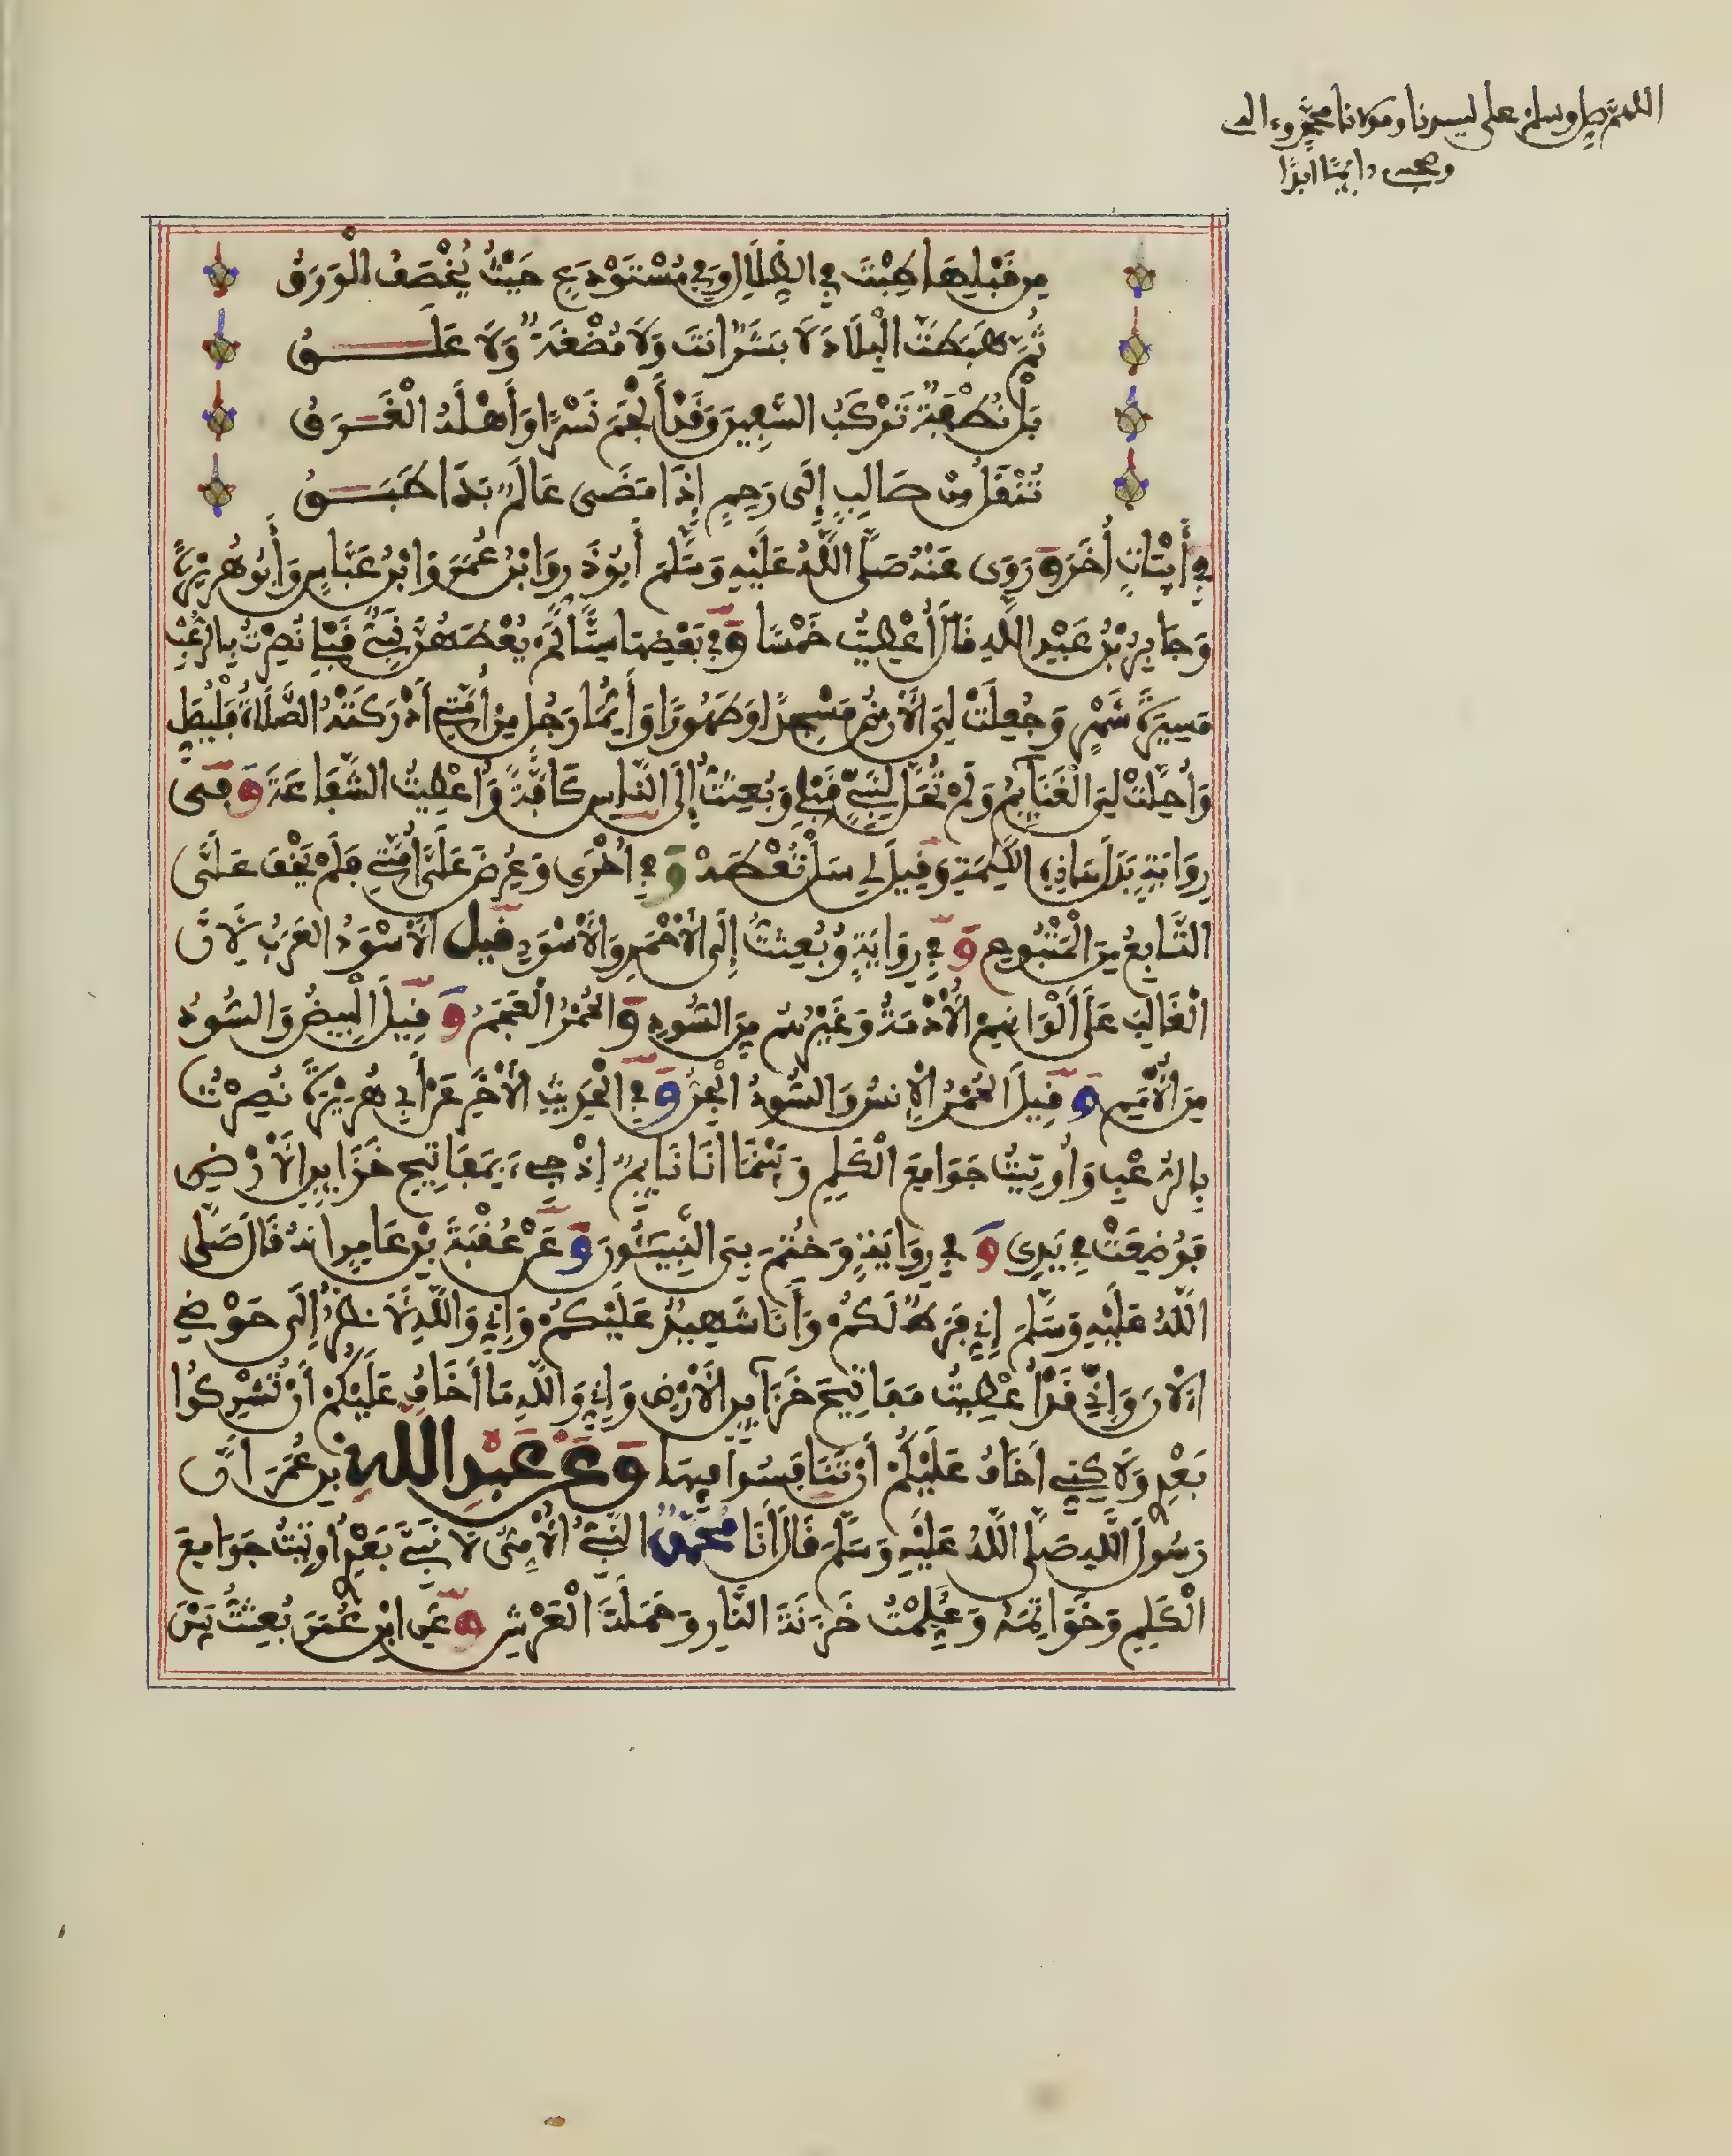 اللهم صل وسلم على سيدنا ومولانا محمد وءاله
وصحبه دائما أبدا
مِن قَبْلِهَا طِبْتَ فِي الظِّلَالِ وَفِي مُسْتَوْدَعٍ حَيْثُ يُخْصَفُ الْوَرَقُ
ثُمَّ هَبَطْتَ الْبِلَادَ لَا بَشَرٌ انتَ وَلَا مُضْغَةٌ وَلَا عَلَقُ
بَلْ نُطْفَةٌ تَرْكَبُ السَّفِينَ وَقَدْ أَلْجَمَ نَسْرًا وَأَهْلَهُ الْغَرَقُ
تُنْقَلُ مِنْ صَالِبٍ إِلَى رَحِمٍ إِذَا مَضَى عَالَمٌ بَدَا طَبَقُ
فِي أَبْيَاتٍ أُخَرَ وَرَوَى عَنْهُ صَلَّى اللَّهُ عَلَيْهِ وَسَلَّمَ أَبُو ذَرٍّ وَابْنُ عُمَرَ وَابْنُ عَبَّاسٍ وَأَبُو هُرَيْرَةَ
وَجَابِرُ بْنُ عَبْدِ اللَّهِ قَالَ أُعْطِيتُ خَمْسًا وَفِي بَعْضِهَا سِتًّا لَمْ يُعْطَهُنَّ نَبِيٌّ قَبْلِي نُصِرْتُ بِالرُّعْبِ
مَسِيرَةَ شَهْرٍ وَجُعِلَتْ لِيَ الْأَرْضُ مَسْجِدًا وَطَهُورًا وَأَيُّمَا رَجُلٍ مِنْ أُمَّتِي أَدْرَكَتْهُ الصَّلَاةُ فَلْيُصَلِّ
وَأُحِلَّتْ لِيَ الْغَنَايِمُ وَلَمْ تُحَلَّ لِنَبِيٍّ قَبْلِي وَبُعِثْتُ إِلَى النَّاسِ كَافَّةً وَأُعْطِيتُ الشَّفَاعَةَ وَفِي
رِوَايَةٍ بَدَلَ هَاذِهِ الْكَلِمَةِ وَقِيلَ لِي سَلْ تُعْطَهْ وَفِي أُخْرَى وَعُرِضَ عَلَيَّ أُمَّتِي فَلَمْ يَخْفَ عَلَيَّ
التَّابِعُ مِنَ الْمَتْبُوعِ وَفِي رِوَايَةٍ وَبُعِثْتُ إِلَى الْأَحْمَرِ وَالْأَسْوَدِ قِيلَ الْأَسْوَدُ الْعَرَبُ لِأَنَّ
الْغَالِبَ عَلَى أَلْوَانِهِمُ الْأُدْمَةُ وَغَيْرُهُم مِنَ السُّودِ وَالْحُمْرُ الْعَجَمُ وَقِيلَ الْبِيضُ وَالسُّودُ
مِنَ الْأُمَمِ وَقِيلَ الْحُمْرُ الْإِنسُ وَالسُّودُ الْجِنُّ وَفِي الْحَدِيثِ الْأَخَرِ عَنْ أَبِي هُرَيْرَةَ نُصِرْتُ
بِالرُّعْبِ وَأُوتِيتُ جَوَامِعَ الْكَلِمِ وَبَيْنَمَا أَنَا نَايِمٌ إِذْ جِيءَ بِمَفَاتِيحِ خَزَايِنِ الْأَرْضِ
فَوُضِعَتْ فِي يَدِي وَفِي رِوَايَةٍ وَخُتِمَ بِيَ النَّبِيـُّونَ وَعَنْ عُقْبَةَ بْنِ عَامِرٍ انهُ قَالَ صَلَّى
اللَّهُ عَلَيْهِ وَسَلَّمَ إِنِّي فَرَطٌ لَكُمْ وَأَنَا شَهِيدٌ عَلَيْكُمْ وَإِنِّي وَاللَّهِ لَأَنظُرُ إِلَى حَوْضِي
الْآنَ وَإِنِّي قَدْ أُعْطِيتُ مَفَاتِيحَ خَزَآيِنِ الْأَرْضِ وَإِنِّي وَاللَّهِ مَا أَخَافُ عَلَيْكُمْ أَنْ تُشْرِكُوا
بَعْدِي وَلَاكِنِّي أَخَافُ عَلَيْكُمْ أَنْ تَنَافَسُوا فِيهَا وَعَنْ عَبْدِ اللهِ بْنِ عُمَرَ أَنَّ
رَسُولَ اللَّهِ صَلَّى اللَّهُ عَلَيْهِ وَسَلَّمَ قَالَ أَنَا مُحَمَّدٌ النَّبِيُّ الْأُمِّيُّ لَا نَبِيَّ بَعْدِي أُوتِيتُ جَوَامِعَ
الْكَلِمِ وَخَوَاتِمَهُ وَعُلِّمْتُ خَزَنَةَ النَّارِ وَحَمَلَةَ الْعَرْشِ وَعَنِ ابْنِ عُمَرَ بُعِثْتُ بَيْنَ